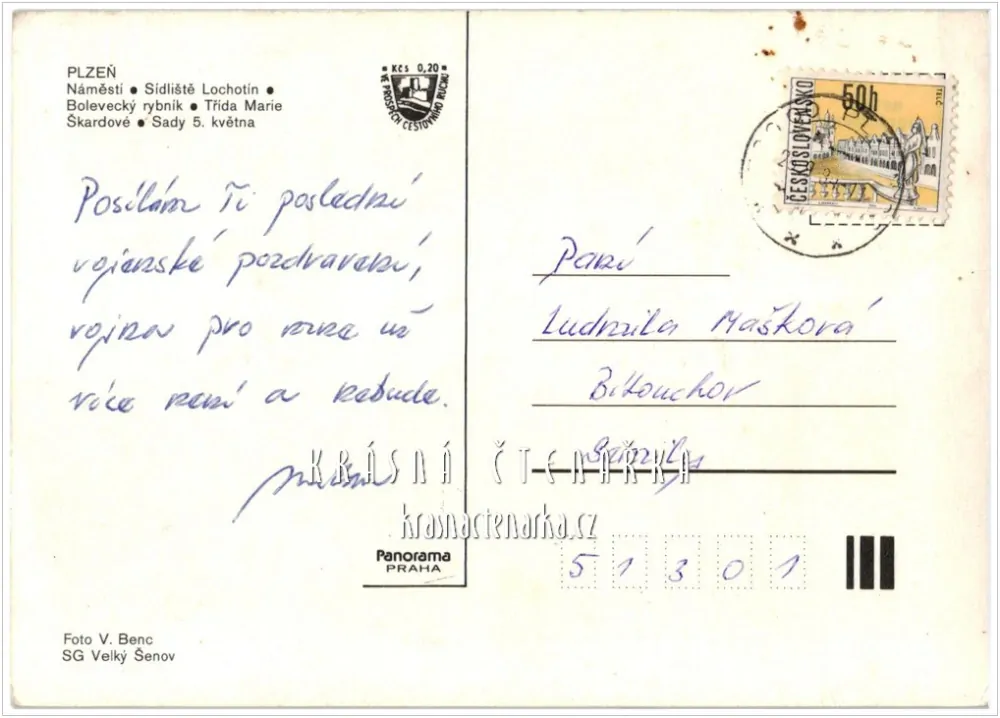 PLZEŇ
Náměstí • Sídliště Lochotín •
Bolevecký rybník • Třída Marie
Škardové • Sady 5. května
Kčs 0,20
VE PROSPĚCH CESTOVNÍHO RUCHU
50h
TELČ
ČESKOSLOVENSKO
Posílám Ti poslední
vojenské pozdravení,
vojna pro mne už
více není a nebude.
Paní
Ludmila Mašková
Bítouchov
Semily
KRÁSNÁ ČTENÁŘKA
krasnactenarka.cz
Panorama
PRAHA
5 1 3 0 1
Foto V. Benc
SG Velký Šenov